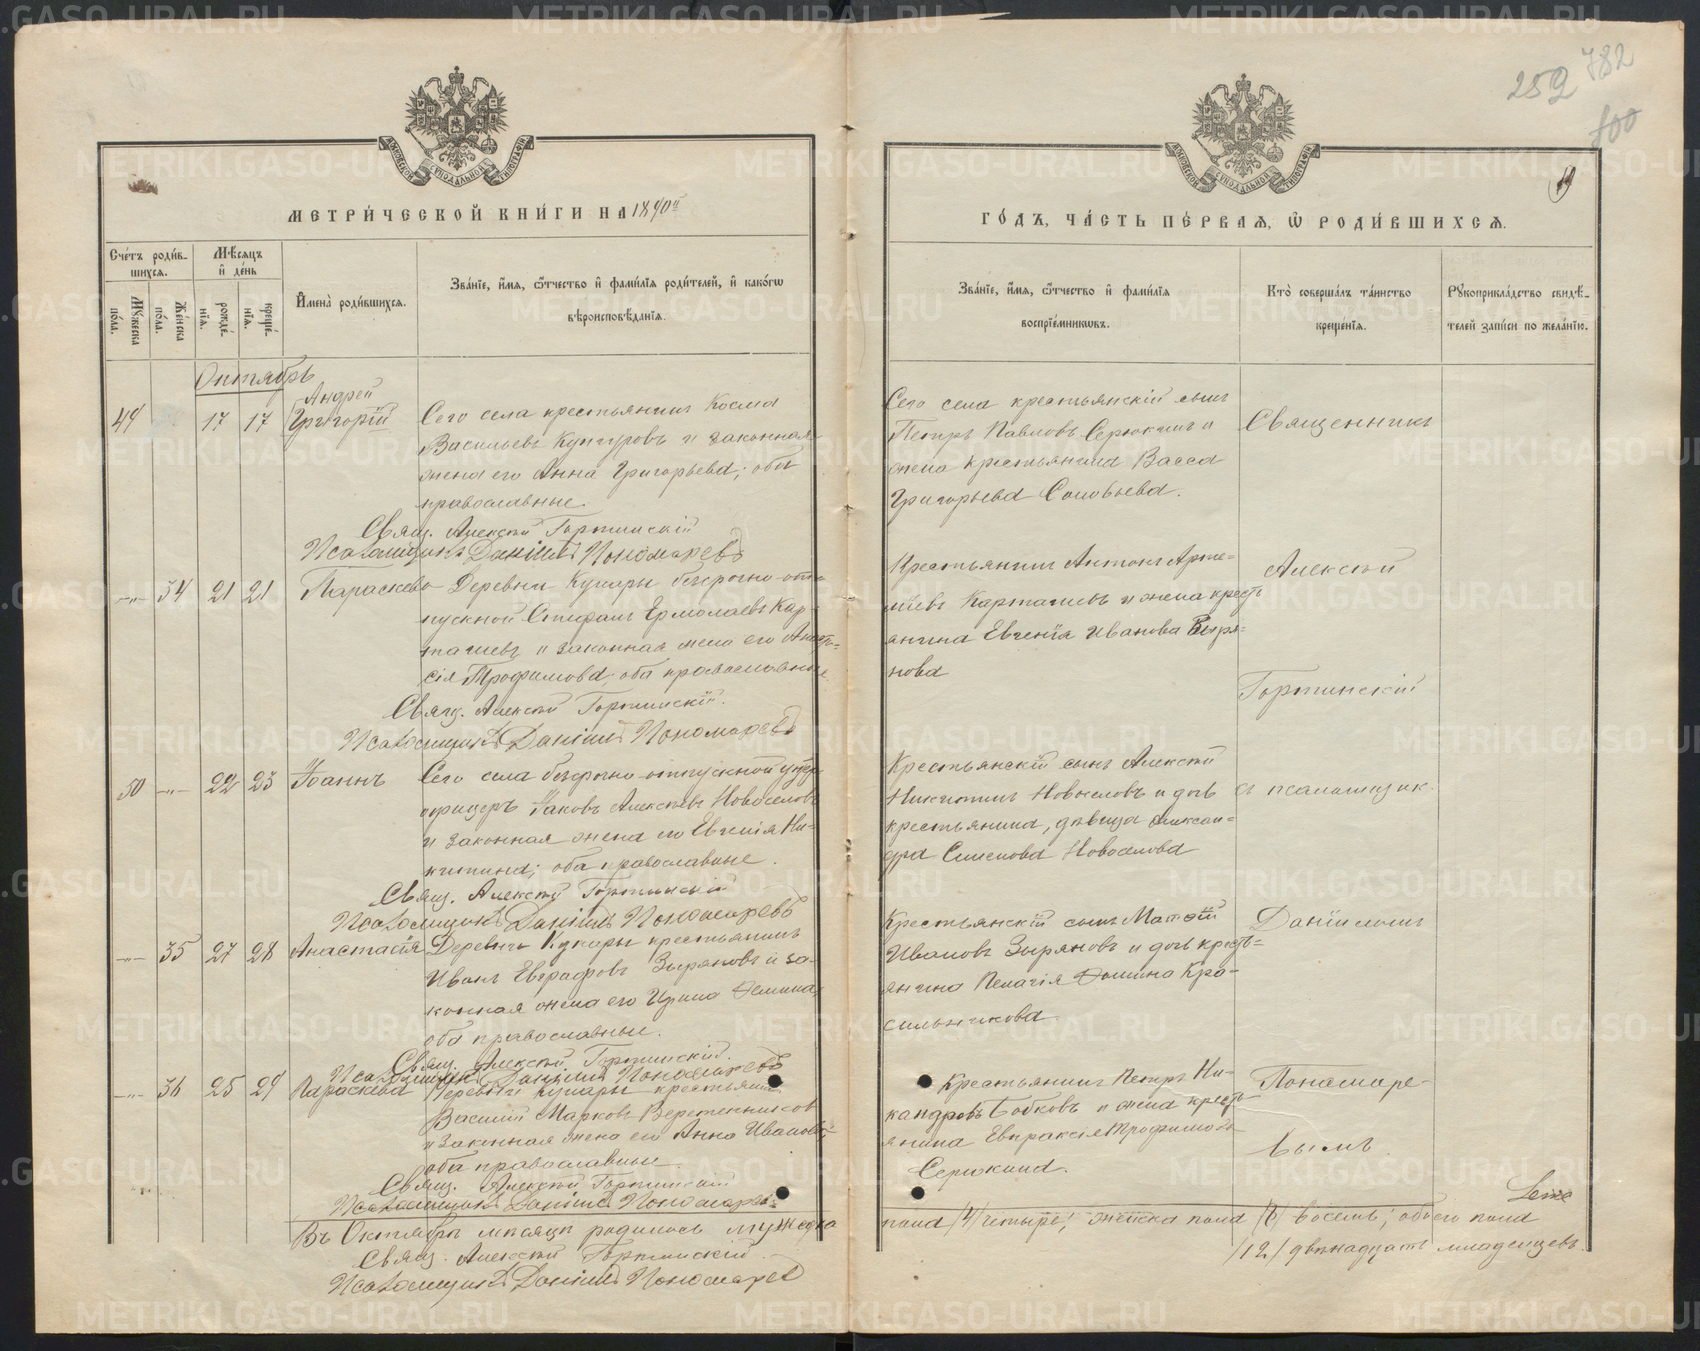 782
259
100
19
МЕТРИ́ЧЕСКОЙ КНИ́ГИ НА 1890й
ГО́ДЪ, ЧА́СТЬ ПЕ́РВАЯ, Ѡ РОДИ́ВШИХСЯ.
Сче́тъ роди́в-
шихся.
Мѣ́сяцъ
и де́нь
Му́жеска
по́ла.
Же́нска
по́ла.
рожде́-
нїя.
креще́-
нїя.
И҆мена̀ роди́вшихся.
Зва́нїе, и҆́мя, ѻ҆́тчество и҆ фами́лїя роди́телей, и҆ како́гѡ
вѣроисповѣ́данїя.
Зва́нїе, и҆́мя, ѻ҆́тчество и҆ фами́лїя
воспрїе́мникѡвъ.
Кто̀ соверша́лъ та́инство
креще́нїя.
Рꙋкоприкла́дство свидѣ́-
телей за́писи по жела́нїю.
Октябрь
Андрей
49 17 17 Григорій Сего села крестьянинъ Косма
Васильевъ Кунгуровъ и законная
жена его Анна Григорьева; оба
православные.
Свящ. Алексѣй Гортинскій
Псаломщикъ Даніилъ Пономаревъ
Сего села крестьянскій сынъ
Петръ Павловъ Серюкинъ и
жена крестьянина Васса
Григорьева Соловьева.
Священникъ
-"- 34 21 21 Параскева Деревни Кунары безсрочно-от-
пускной Стефанъ Ермолаевъ Кар-
и законная жена его Анаста-
сія Трофимова; оба православные.
Свящ. Алексѣй Гортинскій.
Псаломщикъ Даніилъ Пономаревъ
Крестьянинъ Антонъ Арте-
и жена кресть-
янина Евгенія Иванова Зыря-
нова
Алексѣй
Гортинскій
50 -"- 22 23 Іоаннъ Сего села безсрочно-отпускной унтеръ
офицеръ Іаковъ Алексѣевъ Новоселовъ
и законная жена его Евгенія Ни-
китина; оба православные.
Свящ. Алексѣй Гортинскій
Псаломщикъ Даніилъ Пономаревъ
Крестьянскій сынъ Алексѣй
Никитинъ Новоселовъ и дочь
крестьянина, дѣвица Алексан-
дра Семенова Новоселова
съ псаломщик.
-"- 35 27 28 Анастасія Деревни Кунары крестьянинъ
Иванъ Евграфовъ Зыряновъ и за-
конная жена его Ирина Ѳомина;
оба православные.
Свящ. Алексѣй Гортинскій.
Псаломщикъ Даніилъ Пономаревъ
Крестьянскій сынъ Матѳій
Ивановъ Зыряновъ и дочь кресть-
янина Пелагія Ѳомина Кра-
сильникова
Даніиломъ
-"- 36 25 29 Параскева Деревни Кунары крестьянинъ
Василій Марковъ Веретенниковъ
и законная жена его Анна Иванова;
оба православные.
Свящ. Алексѣй Гортинскій
Псаломщикъ Даніилъ Пономаревъ
Крестьянинъ Петръ Ни-
кандровъ Бобковъ и жена кресть-
янина Евпраксія Трофимова
Серюкина.
Понамаре-
вымъ.
Въ Октябрѣ мѣсяцѣ родилось мужеска
пола /4/ четыре; женска пола /8/ восемь; обоего пола
/12/ двѣнадцать младенцевъ.
Свящ. Алексѣй Гортинскій
Псаломщикъ Даніилъ Пономаревъ
METRIKI.GASO-URAL.RU